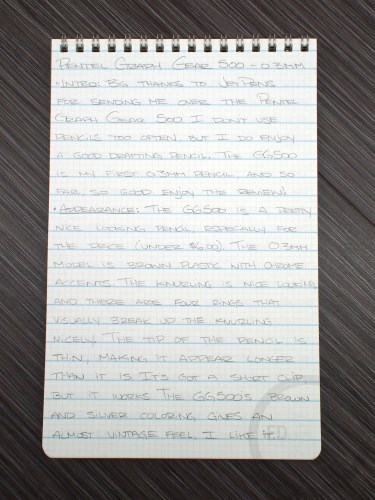 Pentel Graph Gear 500 - 0.3mm
• Intro: Big thanks to JetPens
for sending me over the Pentel
Graph Gear 500. I don't use
pencils too often but I do enjoy
a good drafting pencil. The GG500
is my first 0.3mm pencil and so
far, so good. Enjoy the review!
• Appearance: The GG500 is a pretty
nice looking pencil, especially for
the price (under $6.00). The 0.3mm
model is brown plastic with chrome
accents. The knurling is nice looking
and there are four rings that
visually break up the knurling
nicely. The tip of the pencil is
thin, making it appear longer
than it is. It's got a short clip
but it works. The GG500's brown
and silver coloring gives an
almost vintage feel. I like it.